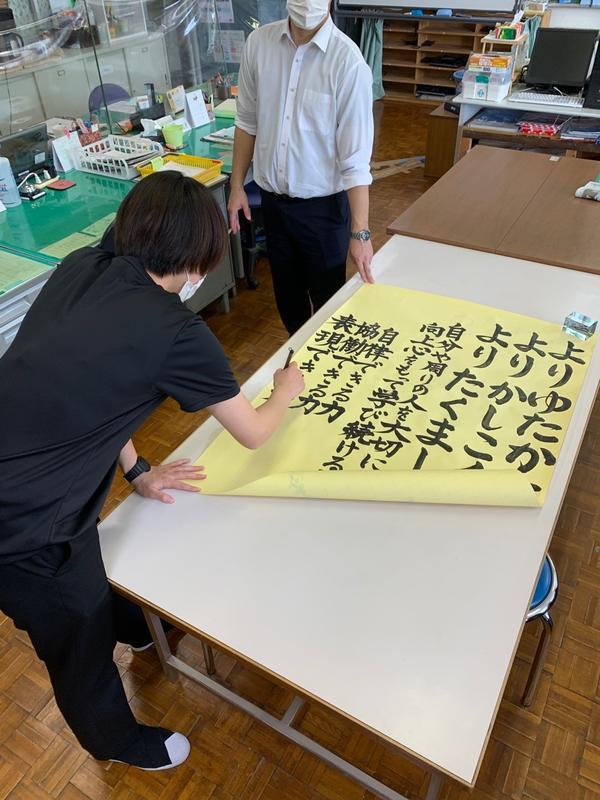 よりゆたか
よりかしこ
よりたくまし
自分や周りの人を大切に
向上心をもって学び続ける
自律できる力
協働できる力
表現でき